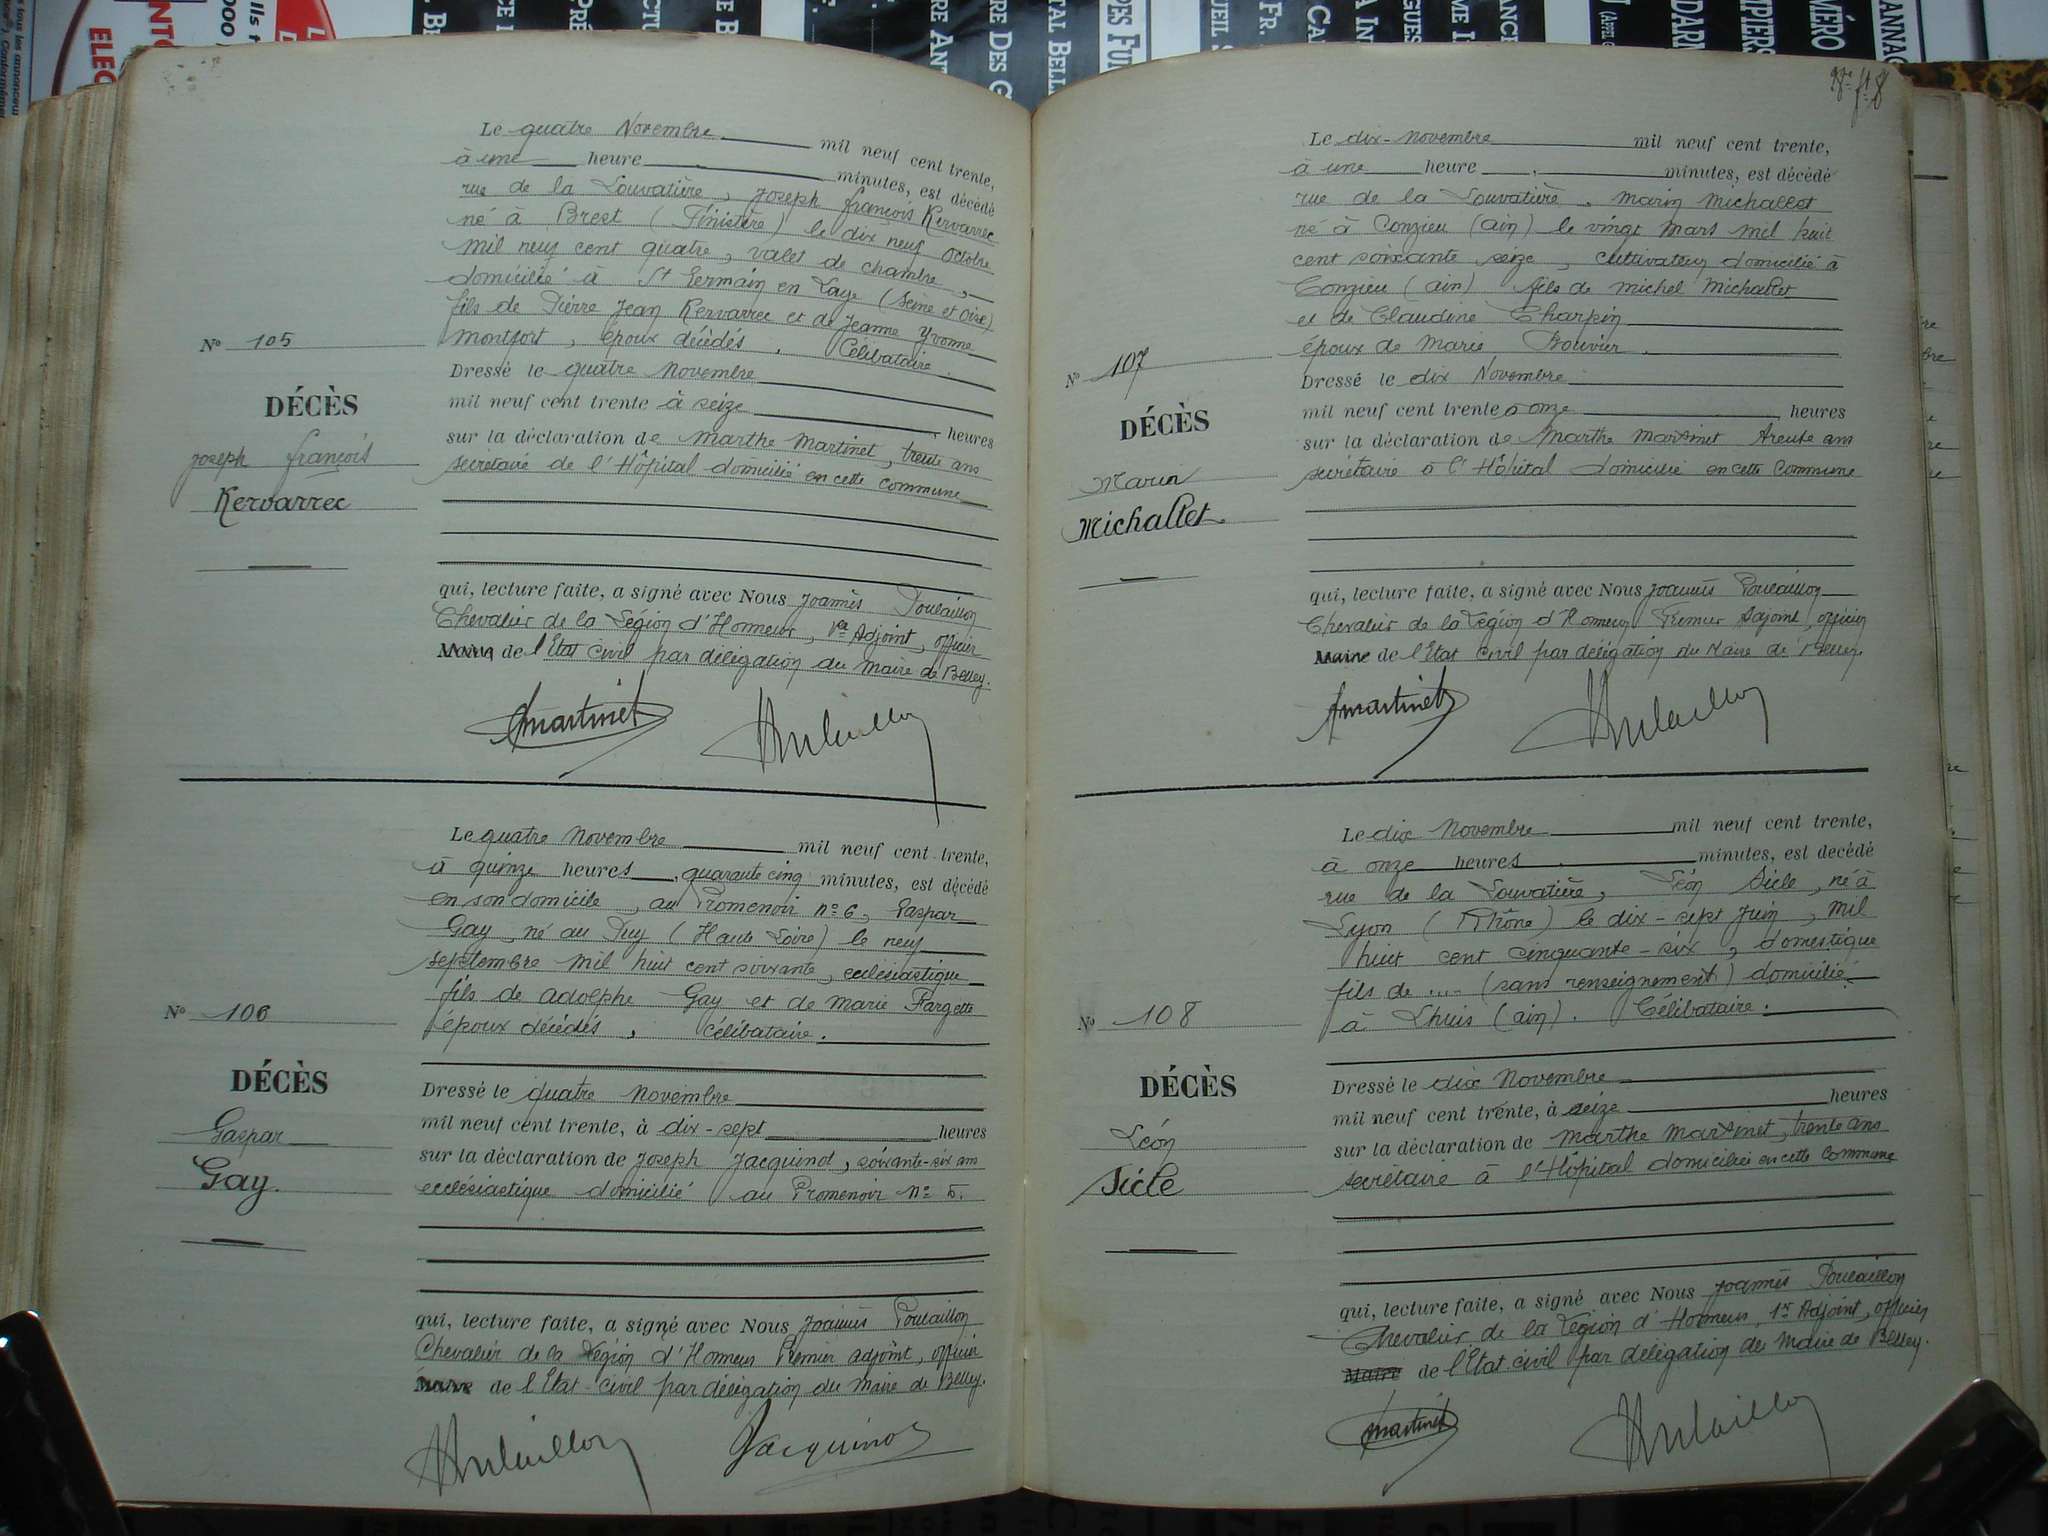 Le quatre Novembre mil neuf cent trente,
à une heure minutes, est décédé
rue de la Louvatière, Joseph François Kervarrec
né à Brest (Finistère) le dix neuf octobre
mil neuf cent quatre, valet de chambre,
domicilié à St Germain en Laye (Seine et Oise)
fils de Pierre Jean Kervarrec et de Jeanne Yvonne
Montfort, époux décédés. Célibataire.
Nº 105
Dressé le quatre Novembre
mil neuf cent trente à seize heures
DÉCÈS
Joseph François
Kervarrec
sur la déclaration de Marthe Martinet, trente ans
secrétaire de l'Hôpital domicilié en cette commune
qui, lecture faite, a signé avec Nous Joannès Poulaillon
Chevalier de la Légion d'Honneur, 1er Adjoint, officier
Maire de l'Etat civil par délégation du Maire de Belley.
Martinet Poulaillon
Le quatre Novembre mil neuf cent trente,
à quinze heures quarante cinq minutes, est décédé
en son domicile, au Promenoir nº 6, Gaspar
Gay, né au Puy (Haute Loire) le neuf
septembre mil huit cent soixante, ecclésiastique
fils de Adolphe Gay et de Marie Fargette
époux décédés, célibataire.
Nº 106
DÉCÈS
Gaspar
Gay.
Dressé le quatre Novembre
mil neuf cent trente, à dix-sept heures
sur la déclaration de Joseph Jacquinod, soixante-six ans
ecclésiastique domicilié au Promenoir nº 5.
qui, lecture faite, a signé avec Nous Joannès Poulaillon
Chevalier de la Légion d'Honneur Premier adjoint, officier
Maire de l'Etat-civil par délégation du Maire de Belley.
Poulaillon Jacquinod
Le dix-novembre mil neuf cent trente,
à une heure minutes, est décédé
rue de la Louvatière, Marin Michallet
né à Conzieu (Ain) le vingt Mars mil huit
cent soixante seize, cultivateur domicilié à
Conzieu (Ain) fils de Michel Michallet
et de Claudine Charpin
époux de Marie Bouvier.
Nº 107
DÉCÈS
Marin
Michallet
Dressé le dix Novembre
mil neuf cent trente à onze heures
sur la déclaration de Marthe Martinet trente ans
secrétaire à l'Hôpital domicilié en cette Commune
qui, lecture faite, a signé avec Nous Joannès Poulaillon
Chevalier de la Légion d'Honneur Premier Adjoint, officier
Maire de l'Etat civil par délégation du Maire de Belley.
Martinet Poulaillon
Le dix Novembre mil neuf cent trente,
à onze heures minutes, est decédé
rue de la Louvatière, Léon Sicle, né à
Lyon (Rhône) le dix-sept Juin, mil
huit cent cinquante-six, domestique
fils de .... (sans renseignement) domicilié
à Lhuis (Ain). Célibataire.
Nº 108
DÉCÈS
Léon
Sicle
Dressé le dix Novembre
mil neuf cent trente, à seize heures
sur la déclaration de Marthe Martinet, trente ans
secrétaire à l'Hôpital domiciliée en cette commune
qui, lecture faite, a signé avec Nous Joannès Poulaillon
Chevalier de la Légion d'Honneur, 1er Adjoint, officier
Maire de l'Etat-civil par délégation du Maire de Belley.
Martinet Poulaillon